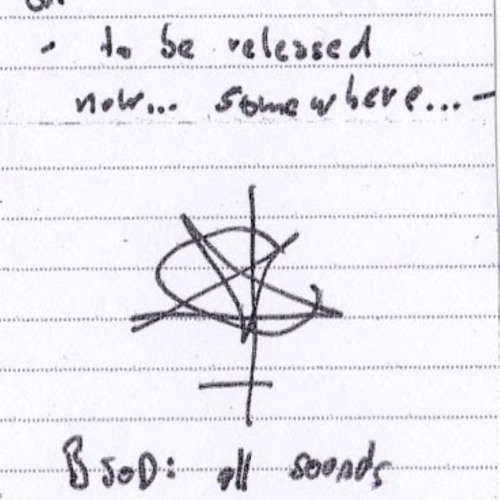 - to be released
now... somewhere... -
BSOD: all sounds